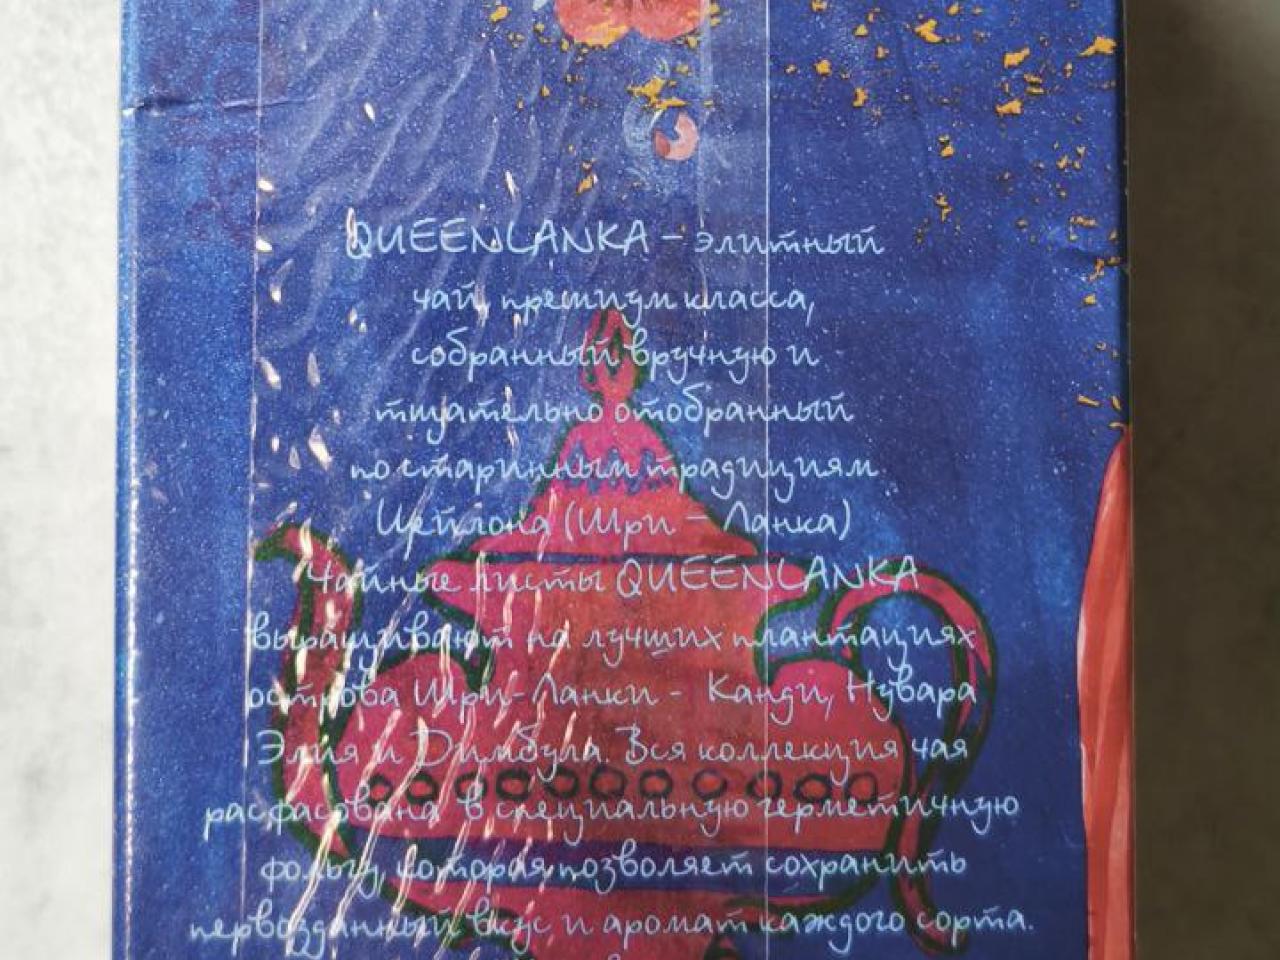 QUEENLANKA – элитный
чай, премиум класса,
собранный вручную и
тщательно отобранный
по старинным традициям
Цейлона (Шри – Ланка)
Чайные листы QUEENLANKA
выращивают на лучших плантациях
острова Шри-Ланки - Канди, Нувара
Элия и Димбула. Вся коллекция чая
расфасована в специальную герметичную
фольгу, которая позволяет сохранить
первозданный вкус и аромат каждого сорта.